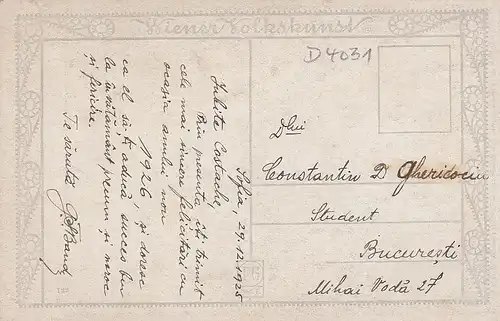 Wiener Volkskunst
D 4031
Sofia, 29.12.1925
Iubite Costache,
Prin prezenta îți trimit
cele mai sincere felicitări cu
ocazia anului nou
1926, și doresc
ca el să-ți aducă succes bun
la învățământ precum și noroc
și fericire.
Te sărută
Dlui
Constantin D Ghericociu
Student
București
Mihai Vodă 27